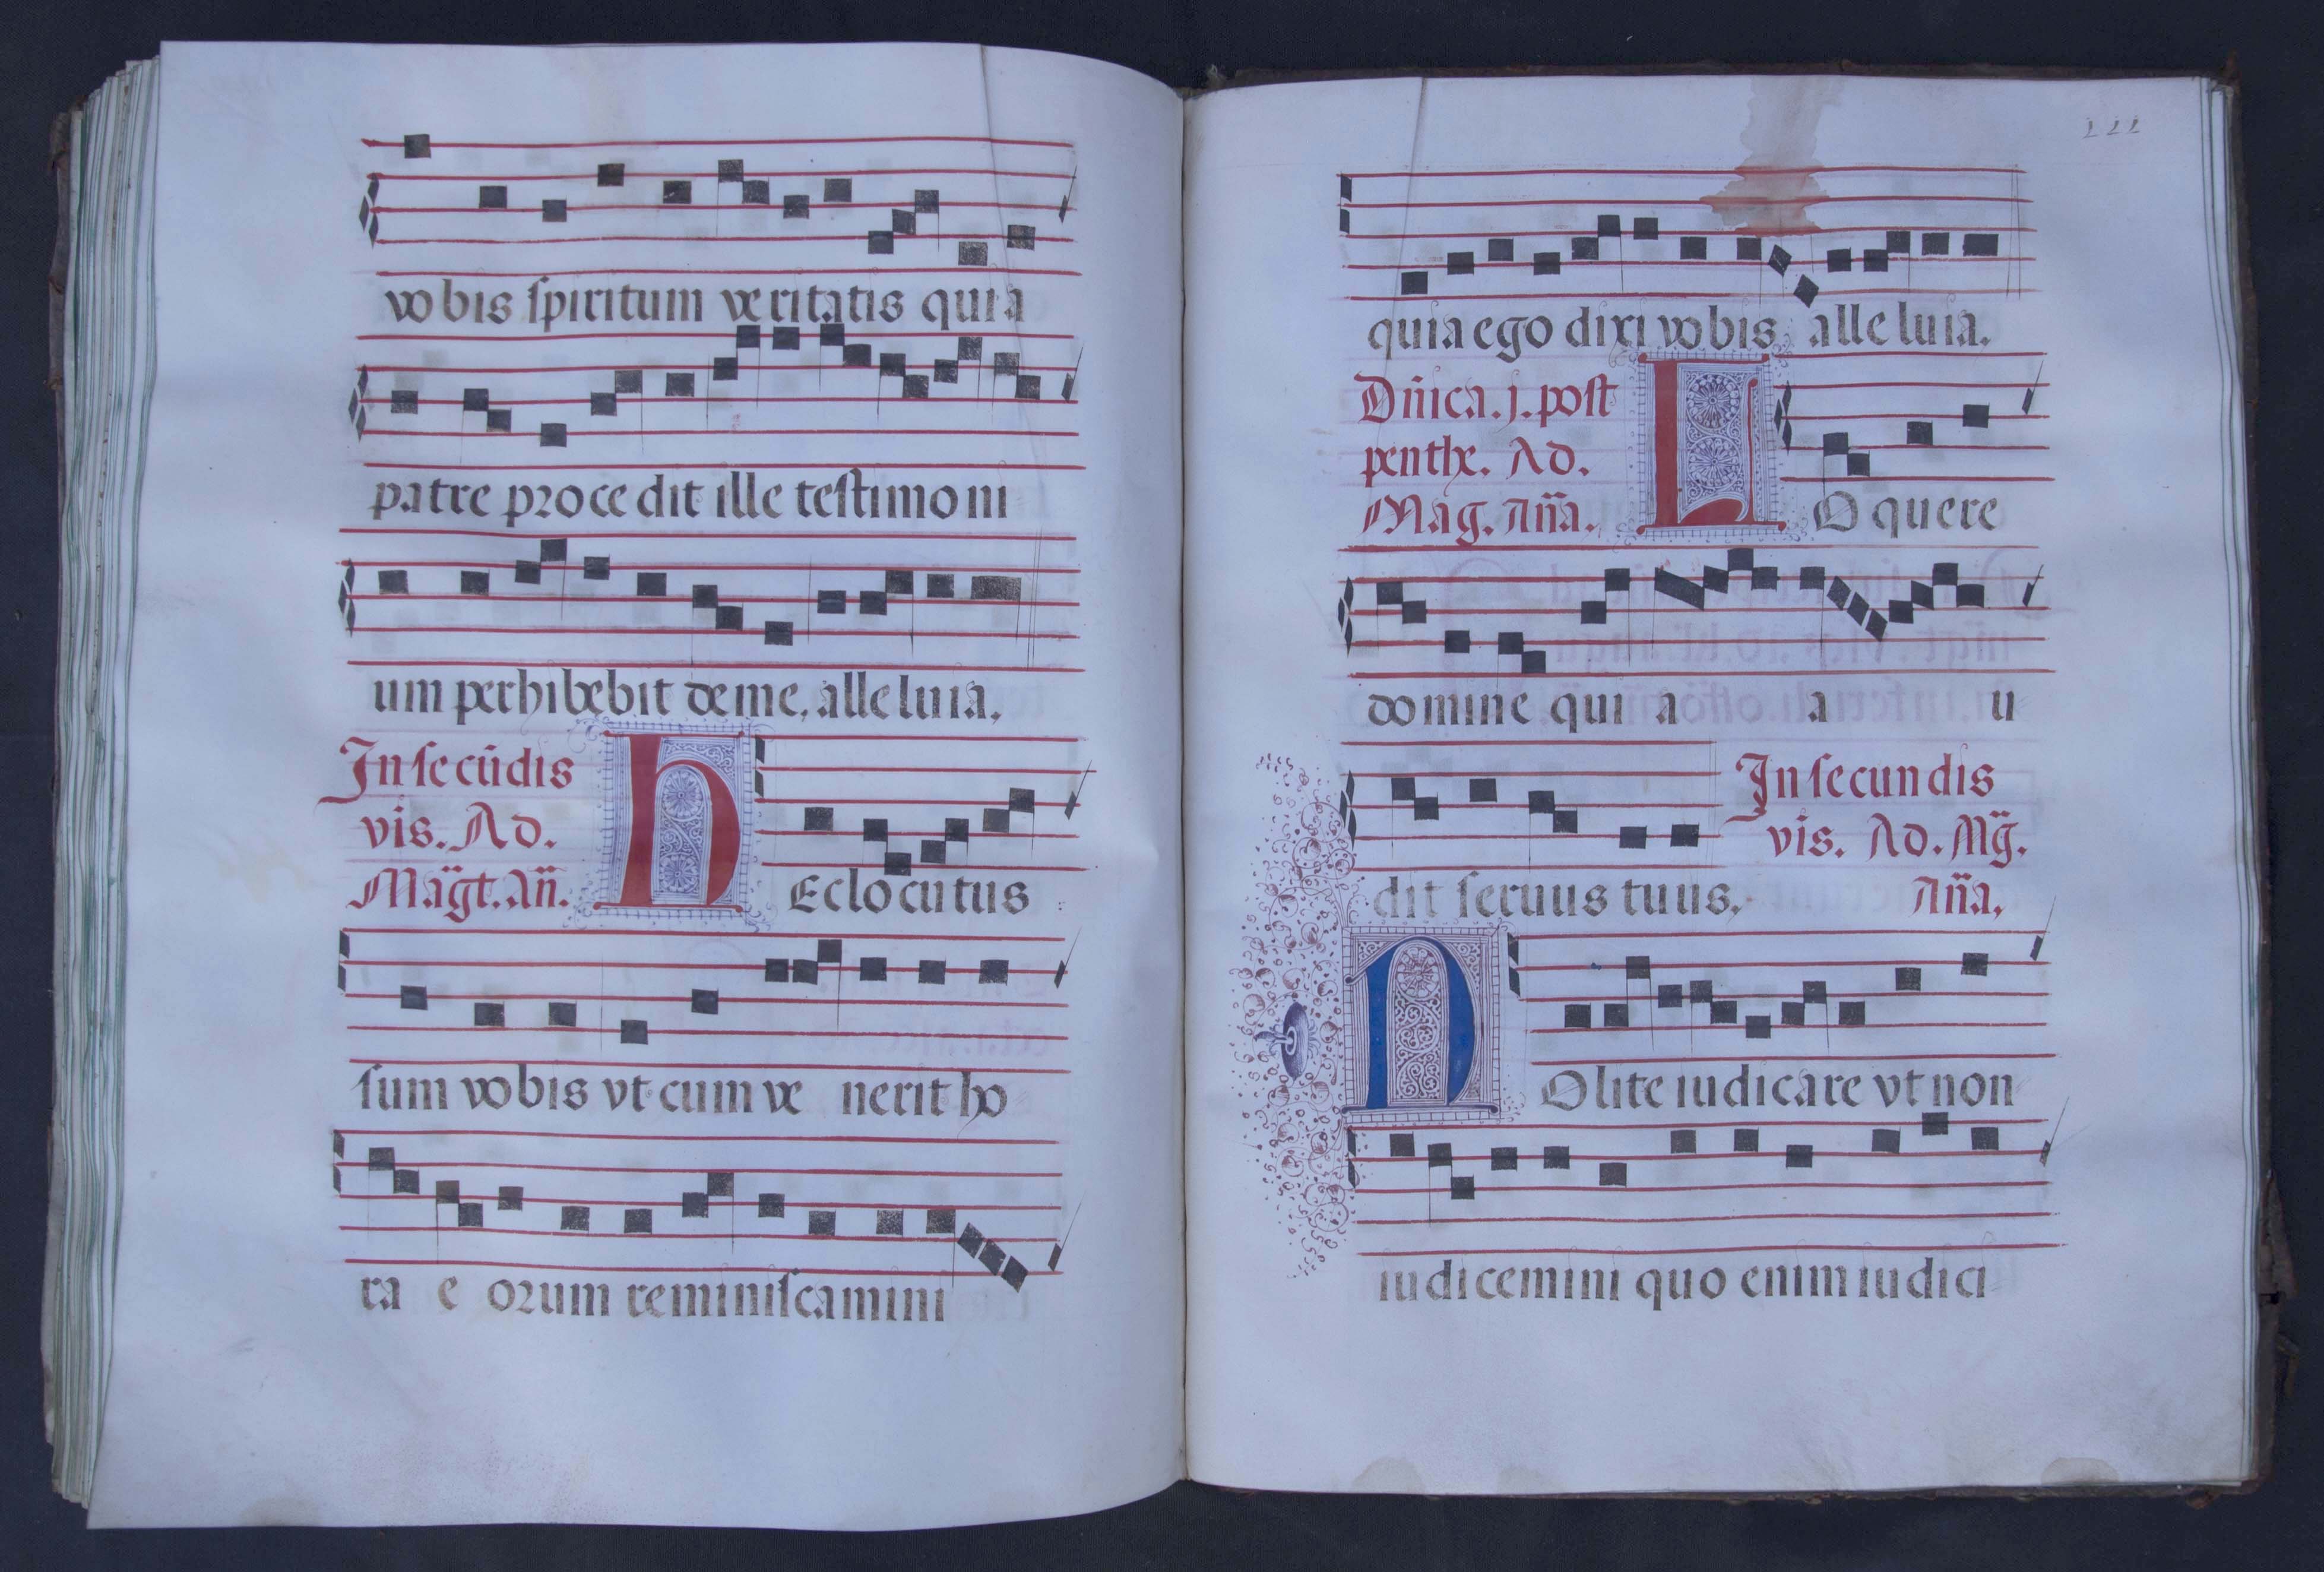 vobis ſpiritum veritatis quia
patre procedit ille teſtimoni
um perhibebit de me, alleluia.
In ſecūdis
vis. Ad.
Mag̃t. Añ.
hEc locutus
ſum vobis vt cum ve nerit ho
ra e orum reminiſcamini
111
quia ego dixi vobis alleluia.
Dñica. j. poſt
penthe. Ad.
Mag. Aña.
LOquere
domine qui a a u
dit ſeruus tuus.
In ſecundis
vis. Ad. Mg̃.
Aña.
NOlite iudicare vt non
iudicemini quo enim iudici